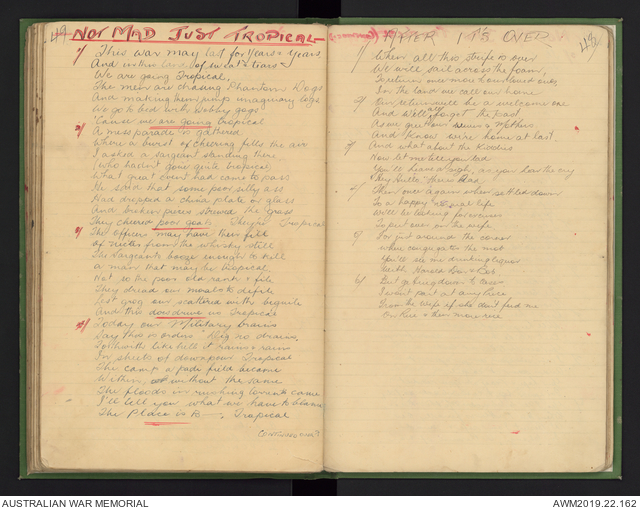 49 NOT MAD JUST TROPICAL
1/ This war may last for years & years
And in this land of sweat & tears
We are going Tropical.
The men are chasing Phantom Dogs
And making them jump imaginary logs
We go to bed with
'Cause we are going tropical
2/ A mess parade is gathered
Where a burst of cheering fills the air
I asked a sargeant standing there
(who hadn't gone quite tropical
What great event had come to pass
He said that some poor silly ass
Had dropped a china plate or glass
And broken pieces strewed the grass
They cheered poor goats They're Tropical
3/ The officers may have their fill
of nectar from the whisky still
The Sargeants booze enough to kill
a man that may be tropical
Not so the poor old rank & file
They dread our morals to defile
Lest grog our scattered wits beguile
And this does drive us Tropical
4/ Today our Military brains
Say this is orders Dig no drains,
It rains & rains
In sheets of downpour Tropical
The camp a paddy field became
Within, without the same
The floods in rushing torrents came
I'll tell you what we have to blame
The Place is B—, Tropical
AFTER IT'S OVER. 48
1/ When all this strife is over
We will sail across the foam,
To return once more to our loved ones
In the land we call our home
2/ Our return will be a welcome one
And we'll forget the past
As we greet our & Mothers
And know we're home at last
3/ And what about the Kiddies
Now let me tell you lad
You'll heave a sigh, as you hear the cry
"Hey Mum, there's Dad.
4/ Then once again when settled down
To a happy life
We'll be looking for excuses
To put over on the wife
5/ For just around the corner
where congregates the mob
You'll see me drinking liquor
With
6/ But
I wouldn't part at any price
From the wife if she don't feed me
On Rice & then more rice
AUSTRALIAN WAR MEMORIAL
AWM2019.22.162